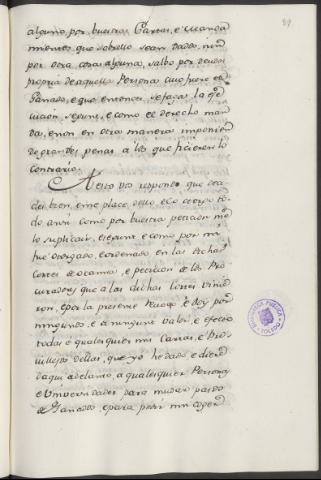 89
alguno, por buestras Cartas, e manda
mientos, que sobrello sean dados, nin
por otra cosa alguna, salbo por deuda
propria de aquella Persona cuio fuere el
Ganado, e que entonces se faga la exe
cucion segunt, e como el derecho man
da, e non en otra manera imponien
do grandes penas a los que ficieren lo
contrario.
A esto vos respondo que de
des bien, e me place dello, e lo otorgo to
do ansi como por buestra peticion me
lo suplicais, e segunt e como por mi
fue otorgado, e ordenado en las dichas
Cortes de Ocaña, e peticion de los Pro
curadores que a las dichas Cortes vinie
ron, e por la presente revoco e doy por
ningunos, e de ninguno valor e efecto
todas e qualesquier mis Cartas, e Pri
villejos dellas, que yo he dado e diere
de aqui adelante, a qualesquier Personas
e Universidades para mudar paso
de Ganados, e para poner imposicion
BIBLIOTECA PUBLICA
TOLEDO